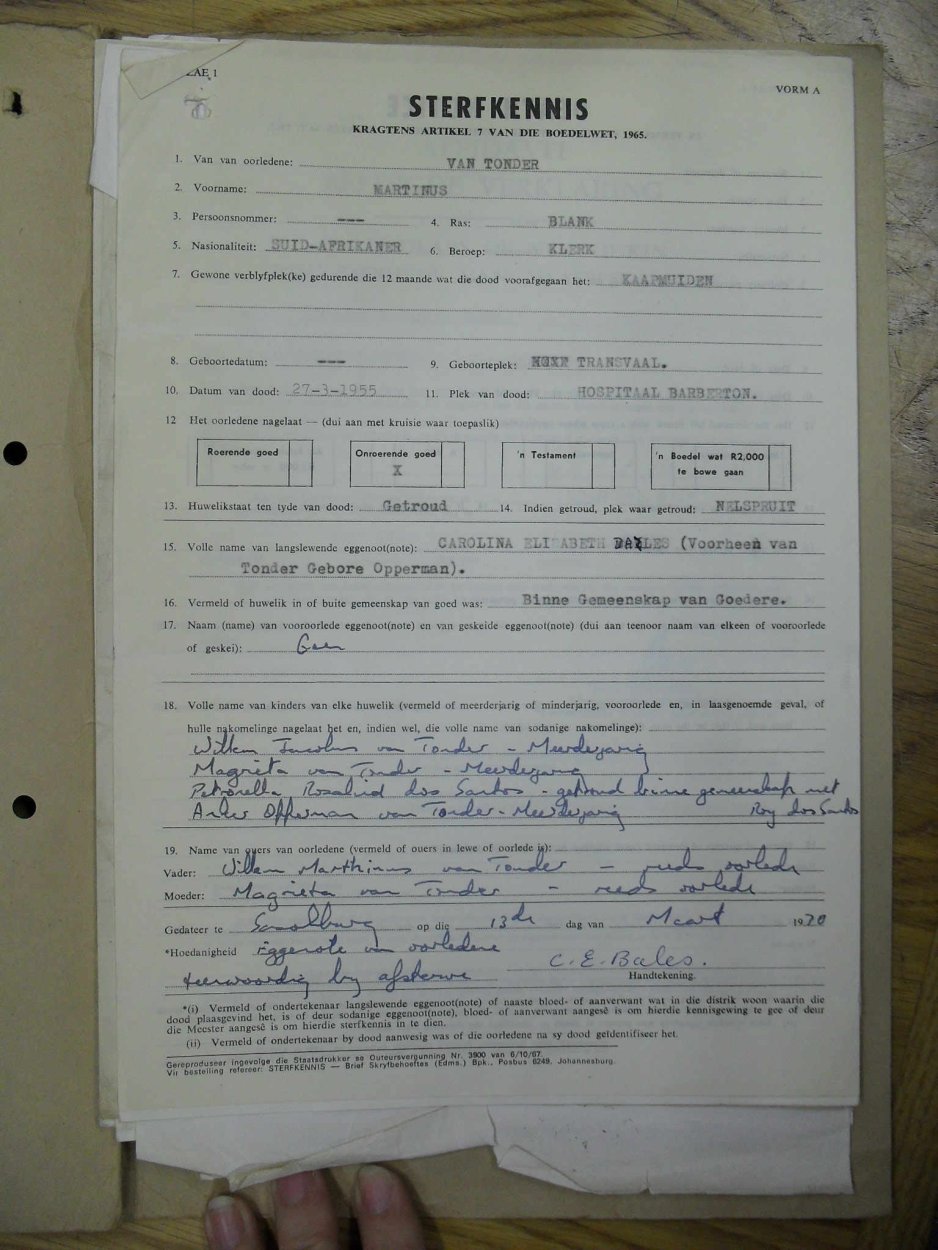 VORM A
STERFKENNIS
KRAGTENS ARTIKEL 7 VAN DIE BOEDELWET, 1965.
1. Van van oorledene: VAN TONDER
2. Voorname: MARTINUS
3. Persoonsnommer: --- 4. Ras: BLANK
5. Nasionaliteit: SUID-AFRIKANER 6. Beroep: KLERK
7. Gewone verblyfplek(ke) gedurende die 12 maande wat die dood voorafgegaan het: KAAPMUIDEN
8. Geboortedatum: --- 9. Geboorteplek: TRANSVAAL.
10. Datum van dood: 27-3-1955 11. Plek van dood: HOSPITAAL BARBERTON.
12 Het oorledene nagelaat — (dui aan met kruisie waar toepaslik)
Roerende goed Onroerende goed 'n Testament 'n Boedel wat R2,000
X te bowe gaan
13. Huwelikstaat ten tyde van dood: Getroud 14. Indien getroud, plek waar getroud: NELSPRUIT
15. Volle name van langslewende eggenoot(note): CAROLINA ELISABETH BALES (Voorheen van
Tonder Gebore Opperman).
16. Vermeld of huwelik in of buite gemeenskap van goed was: Binne Gemeenskap van Goedere.
17. Naam (name) van vooroorlede eggenoot(note) en van geskeide eggenoot(note) (dui aan teenoor naam van elkeen of vooroorlede
of geskei): Geen
18. Volle name van kinders van elke huwelik (vermeld of meerderjarig of minderjarig, vooroorlede en, in laasgenoemde geval, of
hulle nakomelinge nagelaat het en, indien wel, die volle name van sodanige nakomelinge):
Willem Jacobus van Tonder - Meerderjarig
Magrieta van Tonder - Meerderjarig
Petronella Rosalind dos Santos - getroud binne gemeenskap met
Opperman van Tonder - Meerderjarig Roy dos Santos
19. Name van ouers van oorledene (vermeld of ouers in lewe of oorlede is):
Vader: Willem Marthinus van Tonder - reeds oorlede
Moeder: Magrieta van Tonder - reeds oorlede
Gedateer te op die 13de dag van Maart 1970
*Hoedanigheid Eggenote van oorledene
teenwoordig by afsterwe C. E. Bales.
Handtekening.
*(i) Vermeld of ondertekenaar langslewende eggenoot(note) of naaste bloed- of aanverwant wat in die distrik woon waarin die
dood plaasgevind het, is of deur sodanige eggenoot(note), bloed- of aanverwant aangesê is om hierdie kennisgewing te gee of deur
die Meester aangesê is om hierdie sterfkennis in te dien.
(ii) Vermeld of ondertekenaar by dood aanwesig was of die oorledene na sy dood geïdentifiseer het.
Gereproduseer ingevolge die Staatsdrukker se Outeursvergunning Nr. 3900 van 6/10/67.
Vir bestelling refereer: STERFKENNIS — Brief Skryfbehoeftes (Edms.) Bpk., Posbus 6249, Johannesburg.